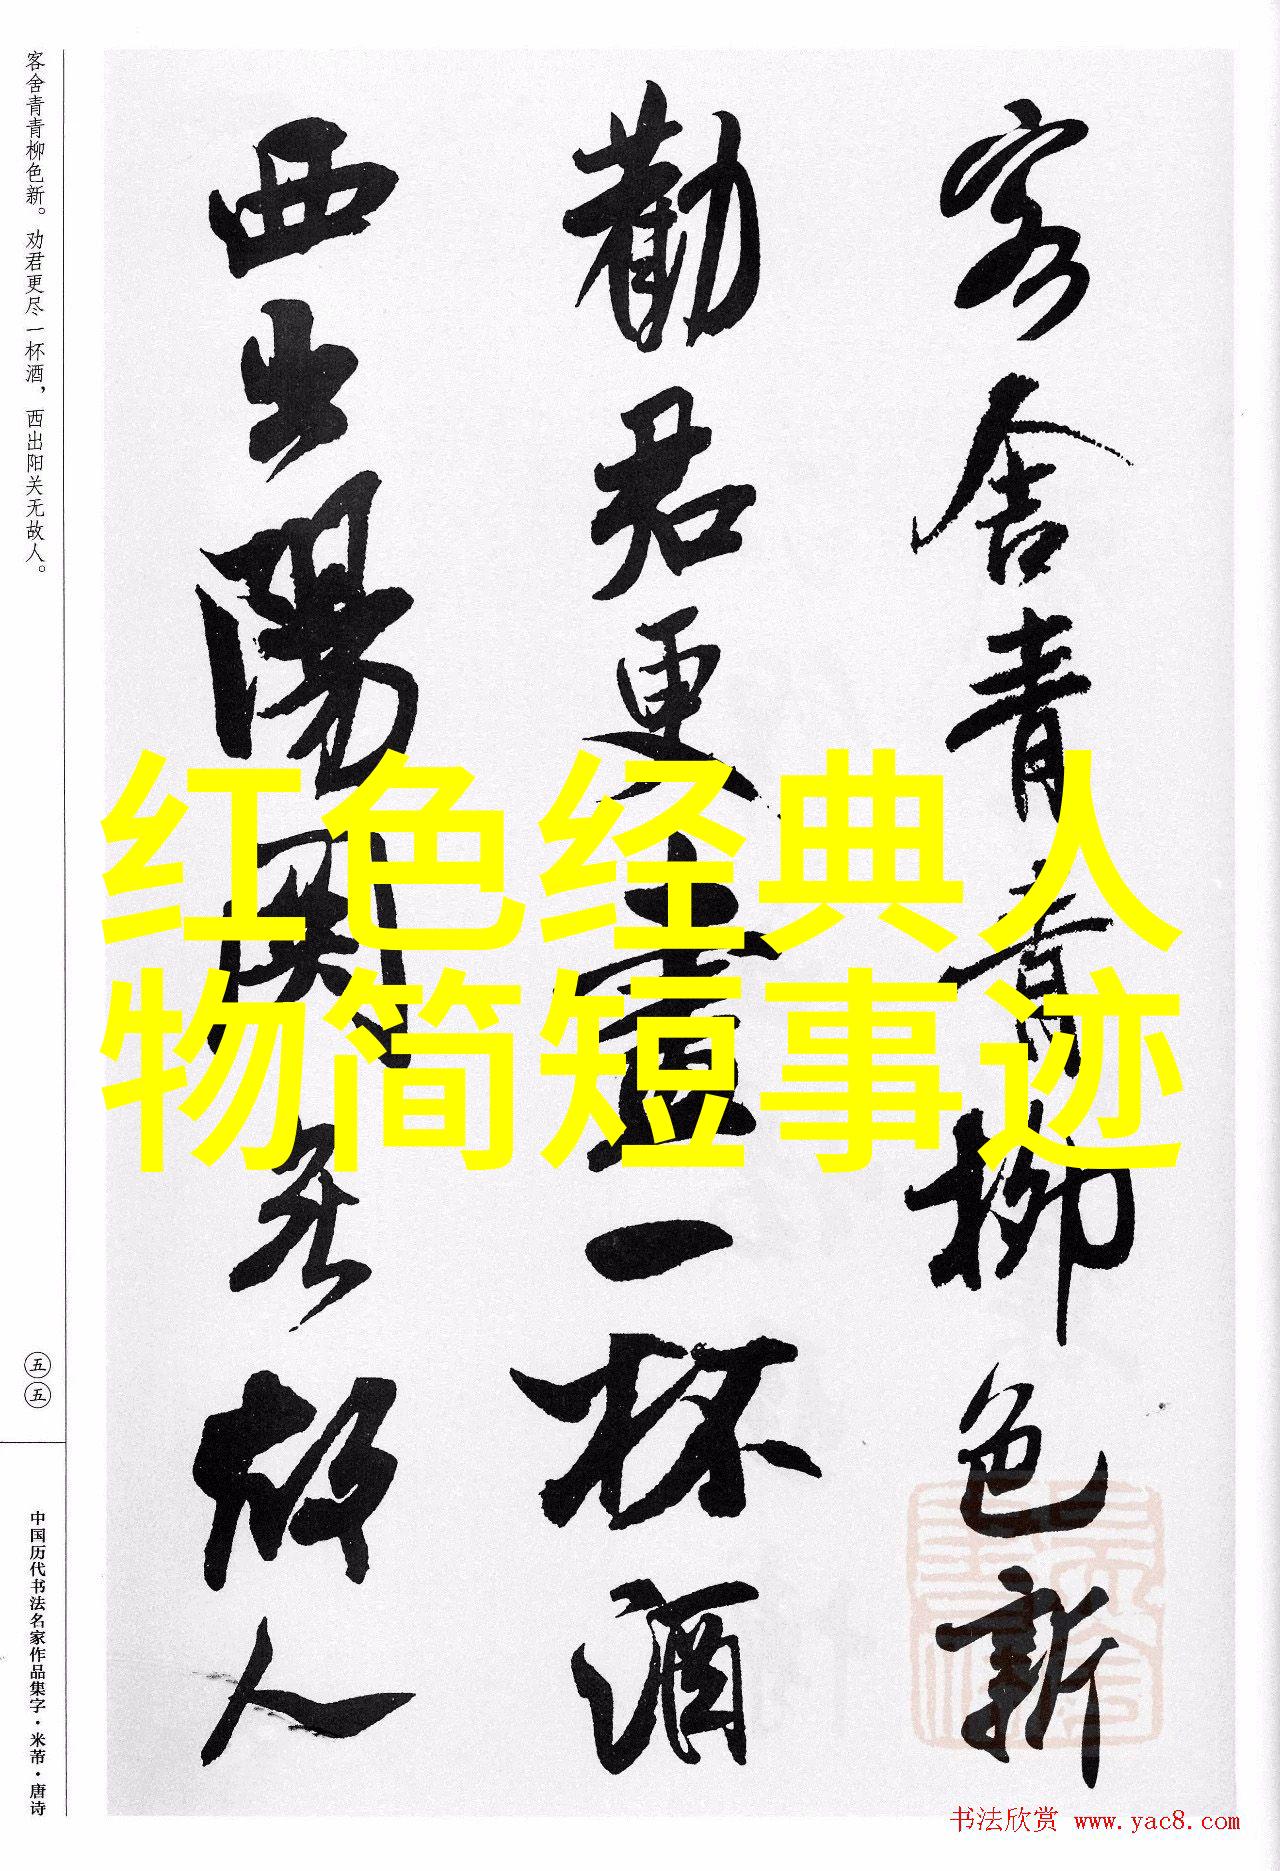 客舍青青柳色新
勸君更盡一杯酒
西出陽關無故人
客舍青青柳色新。劝君更尽一杯酒，西出阳关无故人。
五五
中国历代书法名家作品集字·米芾·唐诗
红色经典人
物简短事迹
书法欣赏 www.yac8.com